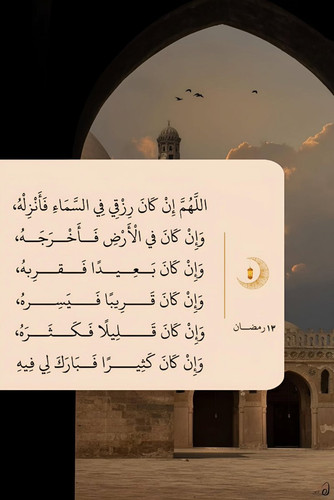 اللَّهُمَّ إِنْ كَانَ رِزْقِي فِي السَّمَاءِ فَأَنْزِلْهُ،
وَإِنْ كَانَ في الْأَرْضِ فَـأَخْـرَجَـهُ،
وَإِنْ كَانَ بَـعِـيـدًا فَـقـربهُ،
وَإِنْ كَانَ قَـرِيـبًا فَـيَـسِـرهُ،
وَإِنْ كَانَ قَـلِـيـلًا فَـكَـثَـرَهُ،
وَإِنْ كَانَ كَثِيـرًا فَـبَـارَكَ لِي فِيهِ
١٣ رمضـان